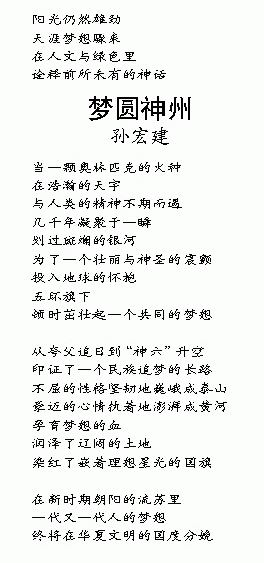 阳光仍然雄劲
天涯梦想骤来
在人文与绿色里
诠释前所未有的神话
梦圆神州
孙宏建
当一颗奥林匹克的火种
在浩瀚的天宇
与人类的精神不期而遇
几千年凝聚于一瞬
划过斑斓的银河
为了一个壮丽与神圣的震颤
投入地球的怀抱
五环旗下
倾时茁壮起一个共同的梦想
从夸父追日到“神六”升空
印证了一个民族追梦的长路
不屈的性格坚韧地巍峨成泰山
豪迈的心情执著地澎湃成黄河
孕育梦想的血
润泽了辽阔的土地
染红了嵌着理想星光的国旗
在新时期朝阳的流苏里
一代又一代人的梦想
终将在华夏文明的国度分娩